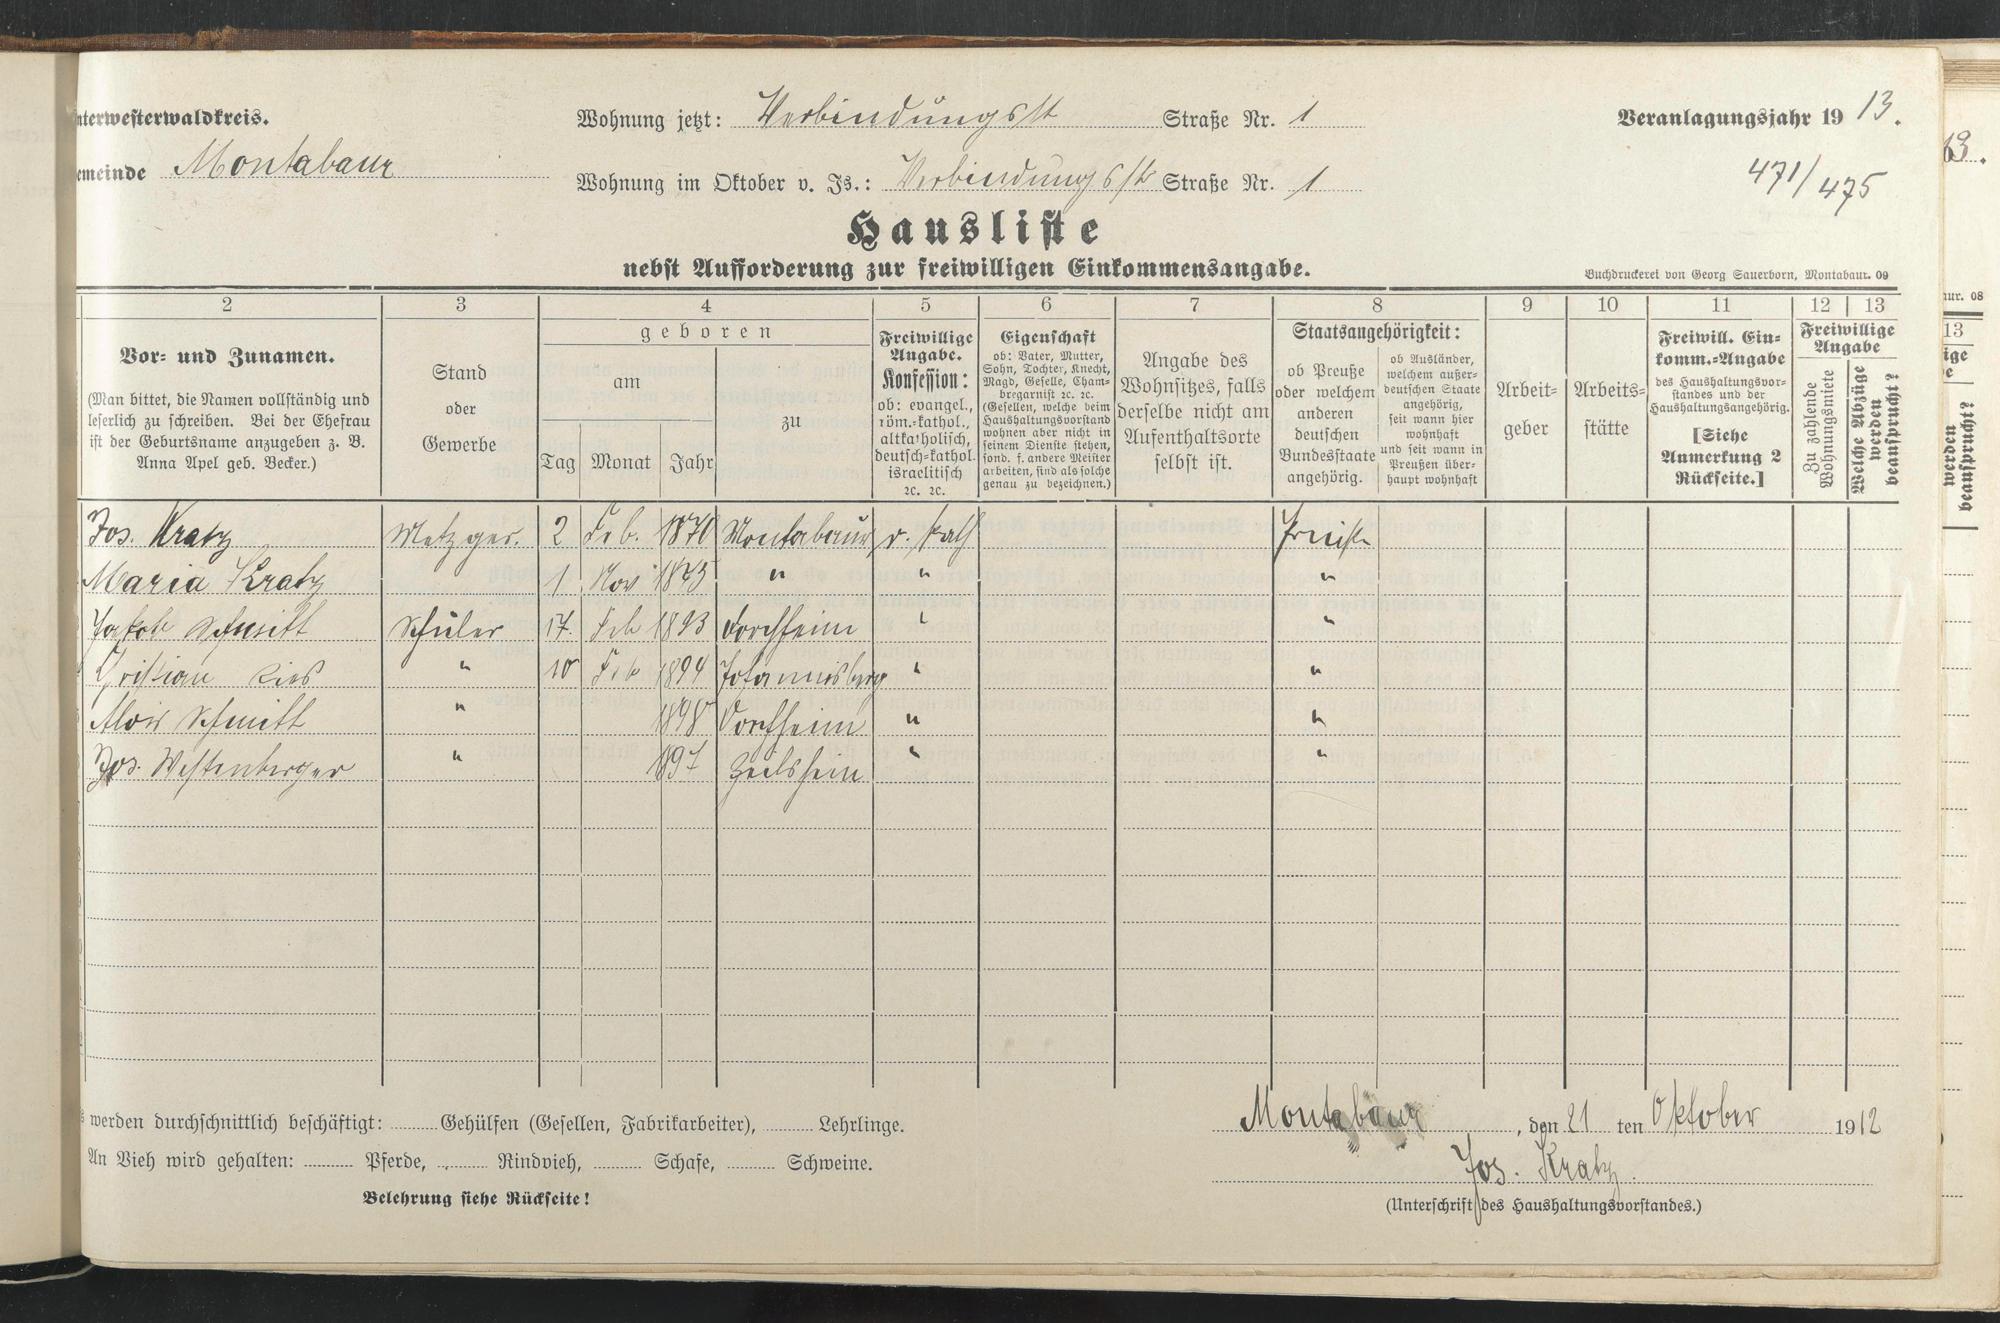 nterwesterwaldkreis.
Wohnung jetzt: Verbindungsst Straße Nr. 1
Veranlagungsjahr 1913.
emeinde Montabaur
Wohnung im Oktober v. Js.: Verbindungsstr Straße Nr. 1
471/475
Hausliste
nebst Aufforderung zur freiwilligen Einkommensangabe.
Buchdruckerei von Georg Sauerborn, Montabaur. 09
2 3 4 5 6 7 8 9 10 11 12 13
Vor- und Zunamen.
(Man bittet, die Namen vollständig und
leserlich zu schreiben. Bei der Ehefrau
ist der Geburtsname anzugeben z. B.
Anna Apel geb. Becker.)
Stand
oder
Gewerbe
geboren
am
zu
Tag Monat Jahr
Freiwillige
Angabe.
Konfession:
ob: evangel.,
röm.-kathol.,
altkatholisch,
deutsch-kathol.
israelitisch
2c. 2c.
Eigenschaft
ob: Vater, Mutter,
Sohn, Tochter, Knecht,
Magd, Geselle, Cham-
bregarnist 2c. 2c.
(Gesellen, welche beim
Haushaltungsvorstand
wohnen aber nicht in
seinem Dienste stehen,
sond. f. andere Meister
arbeiten, sind als solche
genau zu bezeichnen.)
Angabe des
Wohnsitzes, falls
derselbe nicht am
Aufenthaltsorte
selbst ist.
Staatsangehörigkeit:
ob Preuße
oder welchem
anderen
deutschen
Bundesstaate
angehörig.
ob Ausländer,
welchem außer-
deutschen Staate
angehörig,
seit wann hier
wohnhaft
und seit wann in
Preußen über-
haupt wohnhaft
Arbeit-
geber
Arbeits-
stätte
Freiwill. Ein-
komm.-Angabe
des Haushaltungsvor-
standes und der
Haushaltungsangehörig.
[Siehe
Anmerkung 2
Rückseite.]
Freiwillige
Angabe
Zu zahlende
Wohnungsmiete
Welche Abzüge
werden
beansprucht?
Jos. Kratz Metzger. 2 Feb. 1870 Montabaur r. kath Preuße
Maria Kratz 1 Nov 1875 " " "
Jakob Schmitt Schüler 17. Feb 1893 Dorchheim " "
Christian Lies " 10 Feb 1894 Johannisberg " "
Alois Schmitt " 1898 Dorchheim " "
Jos. Westenberger " 1897 Zeilsheim " "
werden durchschnittlich beschäftigt: Gehülfen (Gesellen, Fabrikarbeiter), Lehrlinge.
Montabaur, den 21 ten Oktober 1912
An Vieh wird gehalten: Pferde, Rindvieh, Schafe, Schweine.
Jos. Kratz.
Belehrung siehe Rückseite!
(Unterschrift des Haushaltungsvorstandes.)
13.
ur. 08
13
ige
e
werden
beansprucht?